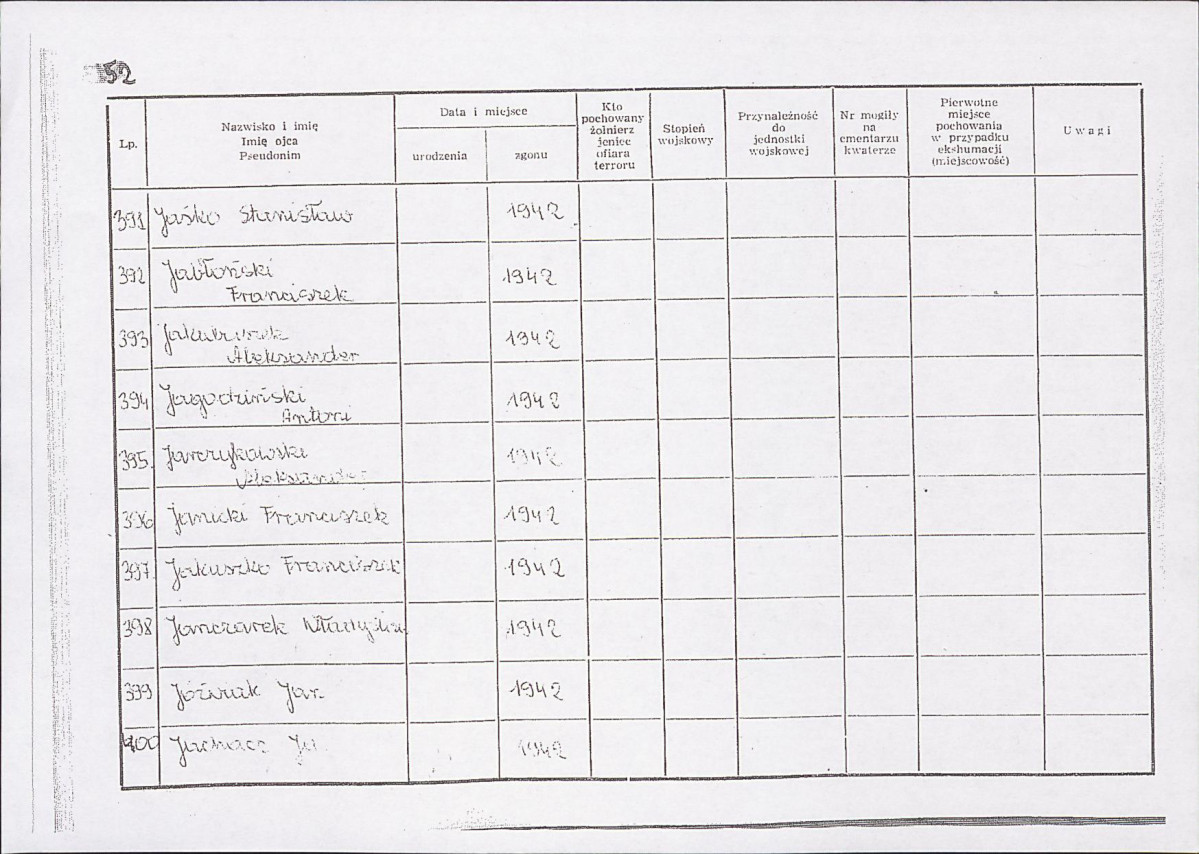 152
Lp.
Nazwisko i imię
Imię ojca
Pseudonim
Data i miejsce
urodzenia
zgonu
Kto
pochowany
żołnierz
jeniec
ofiara
terroru
Stopień
wojskowy
Przynależność
do
jednostki
wojskowej
Nr mogiły
na
cmentarzu
kwaterze
Pierwotne
miejsce
pochowania
w przypadku
ekshumacji
(miejscowość)
Uwagi
391 Jaśko Stanisław 1942
392 Jabłoński 1942
Franciszek
393 1942
Aleksander
394 Jagodziński 1942
Antoni
395. Jarczykowski 1942
Aleksander
396 Janicki Franciszek 1942
397. Jakuszko Franciszek 1942
398 Janczarek 1942
399 Jóźwiak Jan 1942
400 1942